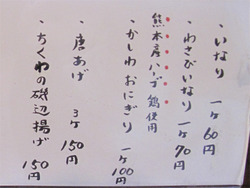 ・いなり 一ヶ60円
・わさびいなり 一ヶ70円
熊本産ハーブ鶏使用
・かしわおにぎり 一ヶ100円
・唐あげ 3ヶ150円
・ちくわの磯辺揚げ 150円